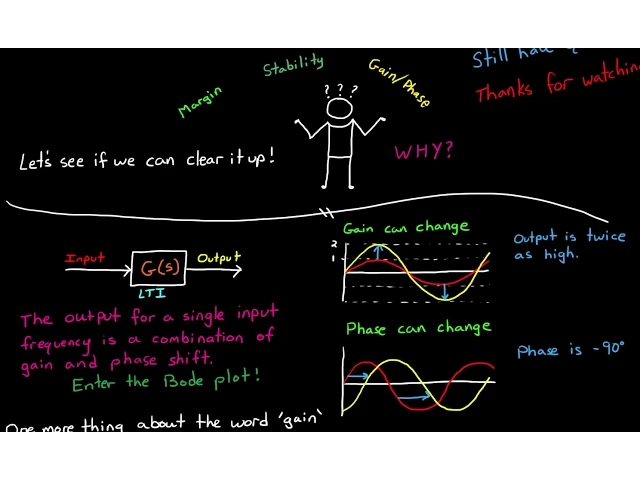 Stability
Gain/Phase
Still had
Thanks for watching
Margin
? ? ?
Let's see if we can clear it up!
WHY?
Gain can change
2
1
Output is twice
as high.
Input
G(s)
Output
LTI
The output for a single input
frequency is a combination of
gain and phase shift.
Enter the Bode plot!
Phase can change
Phase is -90°
One more thing about the word 'gain'